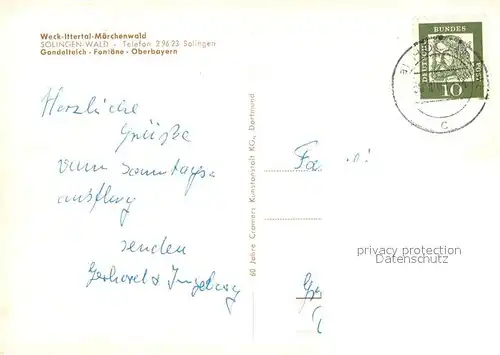 Weck-Ittertal-Märchenwald
SOLINGEN-WALD - Telefon 29623 Solingen
Gondelteich - Fontäne - Oberbayern
BUNDES
DEUTSCHE
POST
10
c
Herzliche
Grüße
vom Sonntags-
ausflug
senden
Gerhard & Ingeborg
60 Jahre Cramers Kunstanstalt KG., Dortmund
Fa
privacy protection
Datenschutz